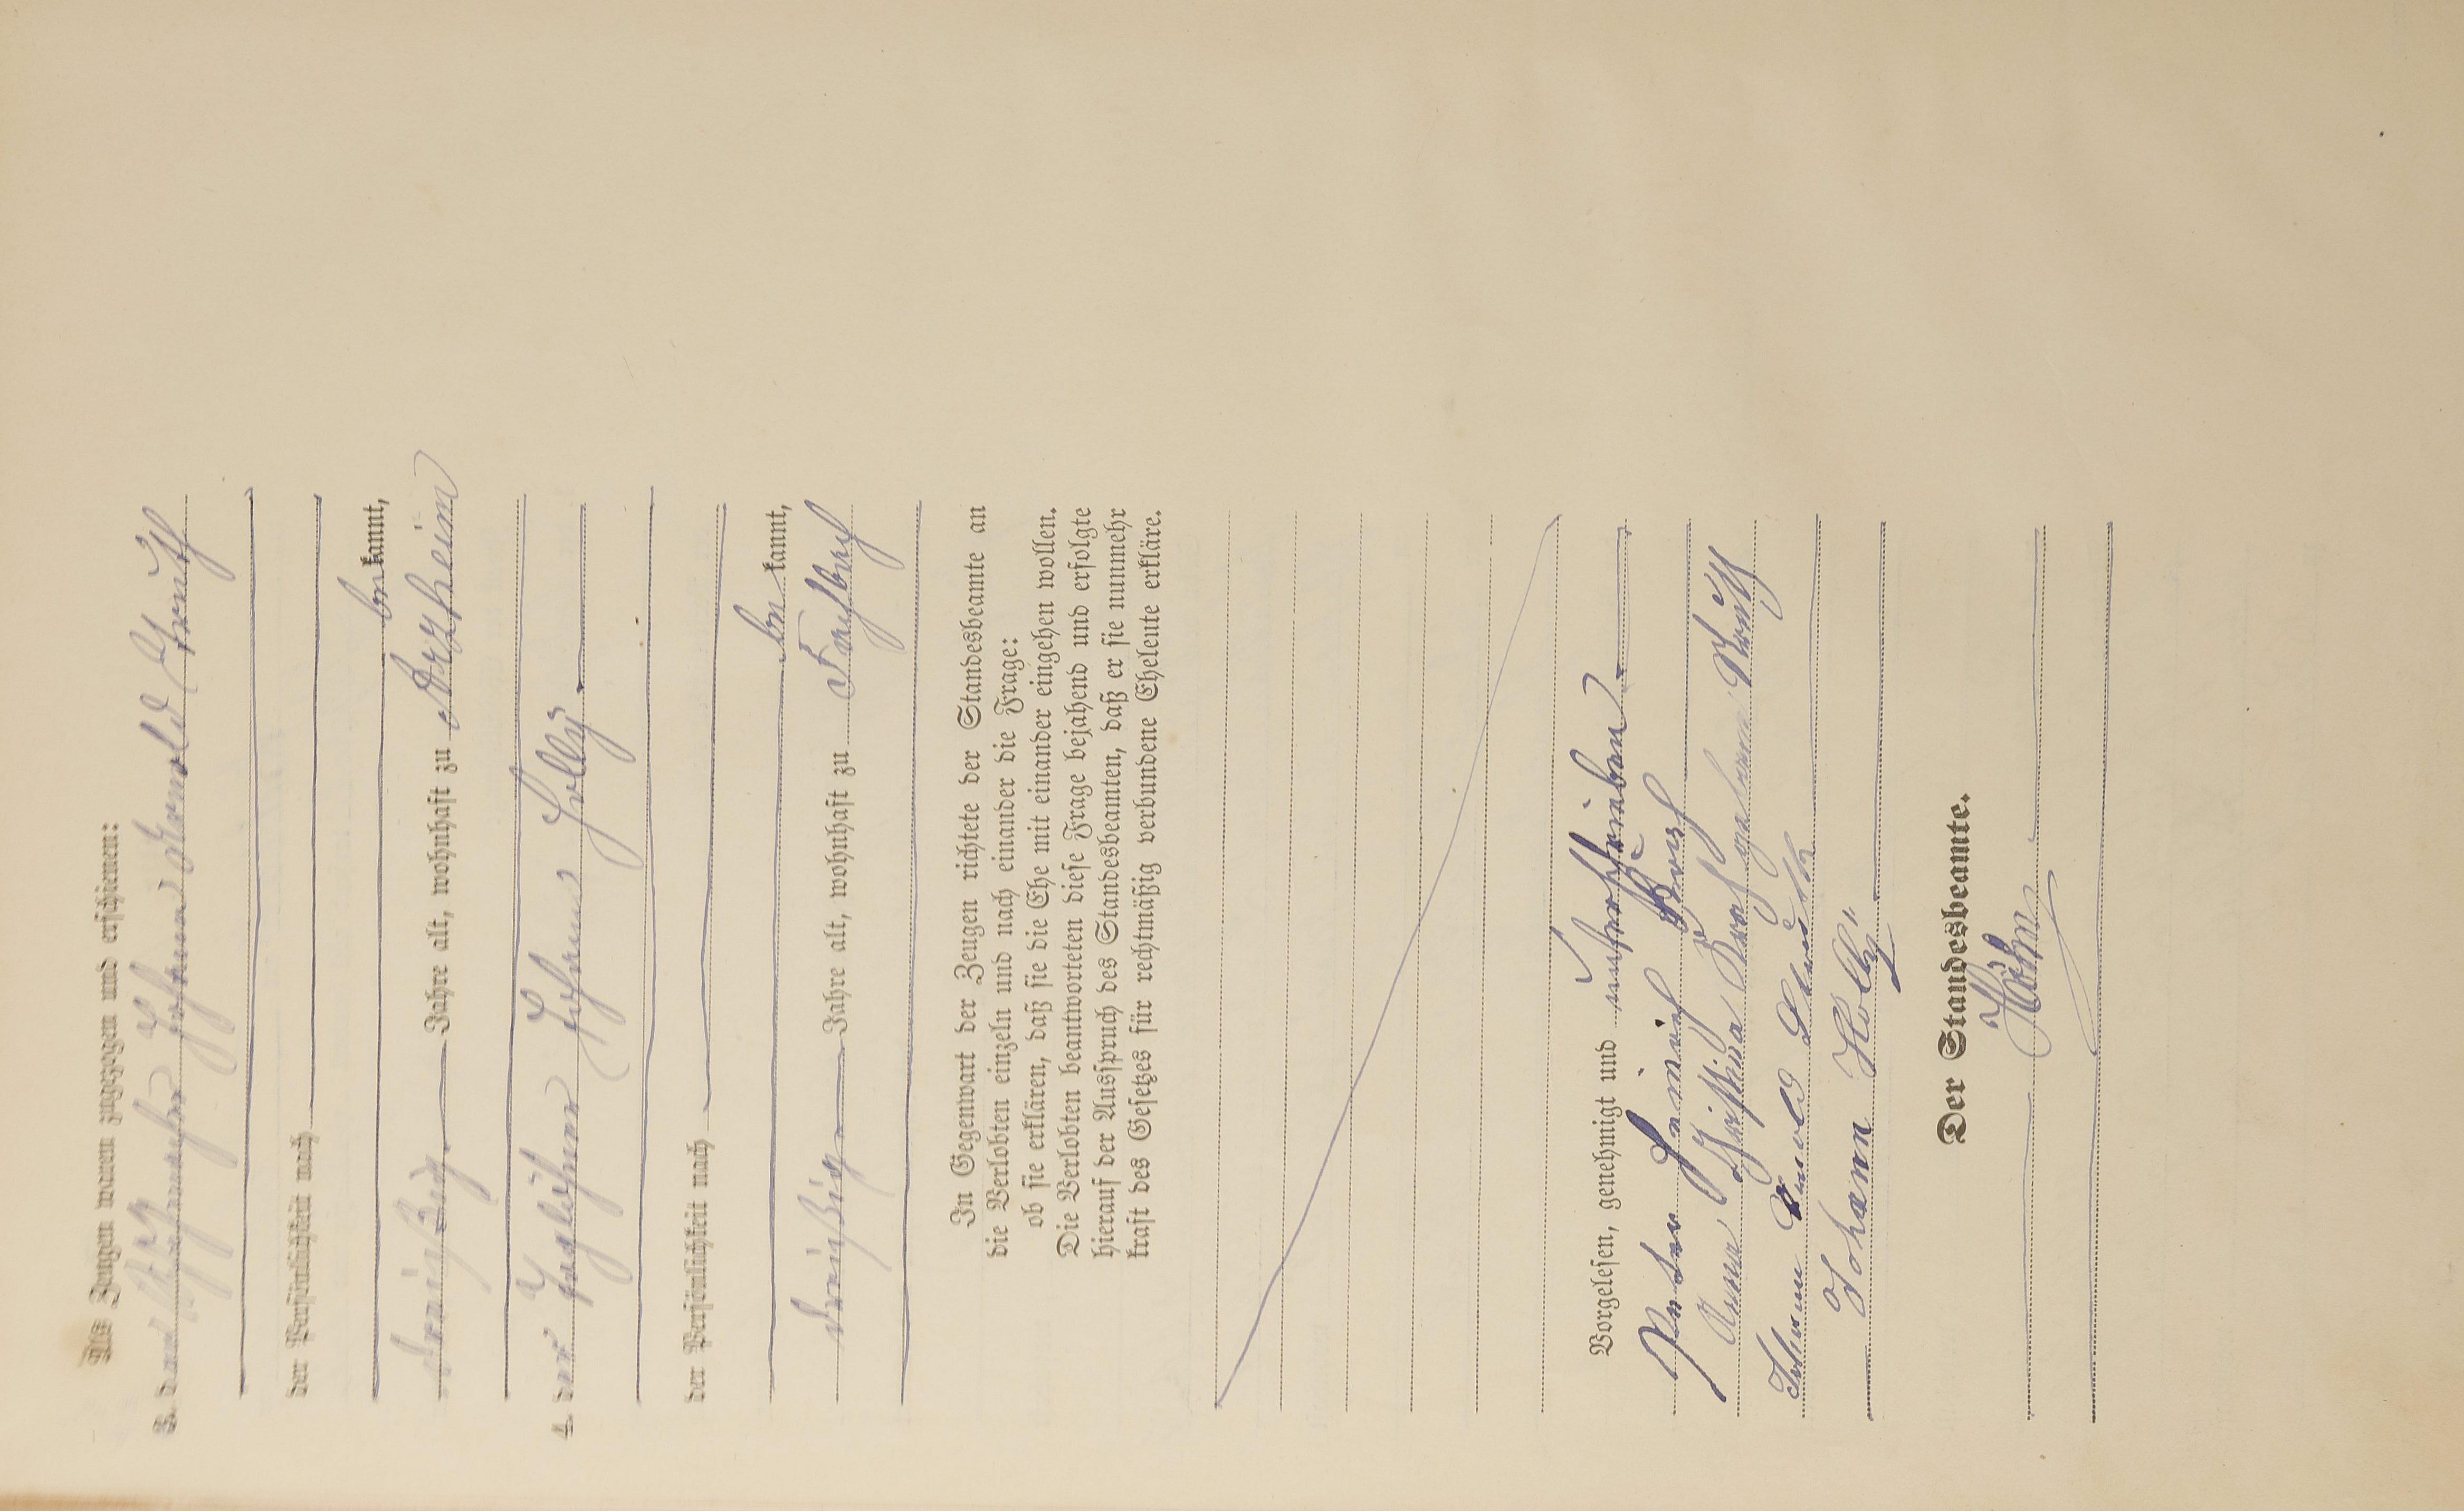 Als Zeugen waren zugezogen und erschienen:
3. der Johann Arnold
der Persönlichkeit nach
bekannt,
dreißig Jahre alt, wohnhaft zu Arzheim
4. der Taglöhner Johann Hölly
der Persönlichkeit nach
bekannt,
dreißig Jahre alt, wohnhaft zu
In Gegenwart der Zeugen richtete der Standesbeamte an
die Verlobten einzeln und nach einander die Frage:
ob sie erklären, daß sie die Ehe mit einander eingehen wollen.
Die Verlobten beantworteten diese Frage bejahend und erfolgte
hierauf der Ausspruch des Standesbeamten, daß er sie nunmehr
kraft des Gesetzes für rechtmäßig verbundene Eheleute erkläre.
Vorgelesen, genehmigt und unterschrieben
Peter Heinrich
Anna Christina geborene
Johann Arnold
Johann Hölly
Der Standesbeamte.